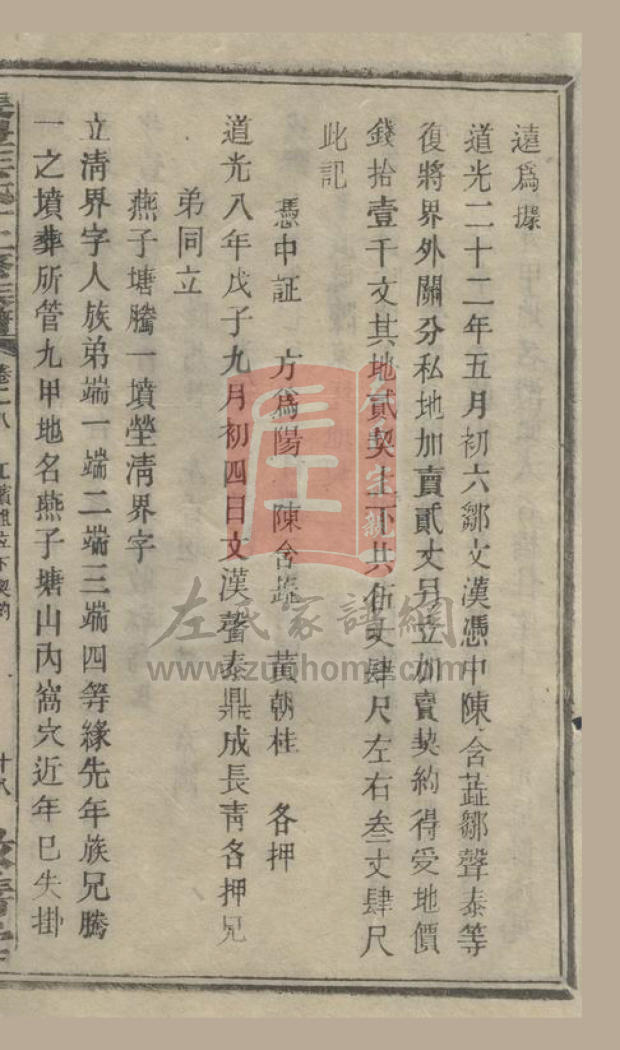 遠爲據
道光二十二年五月初六鄒文漢憑中陳含蘊鄒聲泰等
復將界外關分私地加賣貳丈另立加賣契約得受地價
錢拾壹千文其地貳契上下共伍丈肆尺左右叁丈肆尺
此記
憑中証 方爲陽 陳含蘊 黃朝桂 各押
道光八年戊子九月初四日文漢聲泰鼎成長靑各押兄
弟同立
燕子塘騰一墳塋淸界字
立淸界字人族弟端一端二端三端四等緣先年族兄騰
一之墳葬所管九甲地名燕子塘山內窩穴近年已失掛
卷二八
十八
左氏家譜網
www.zuohome.com